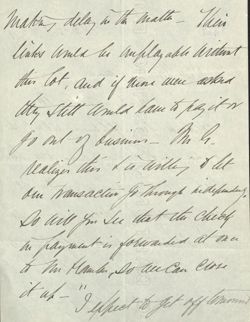 making delay in the matter - Their
links would be unplayable without
this lot, and if more were asked
they still would have to pay it or
go out of business - Mr G.
realizes this & is willing to let
our transaction go through independently.
So will you see that the check
in payment is forwarded at once
to Mr so we can close
it up - "
I expect to get off tomorrow